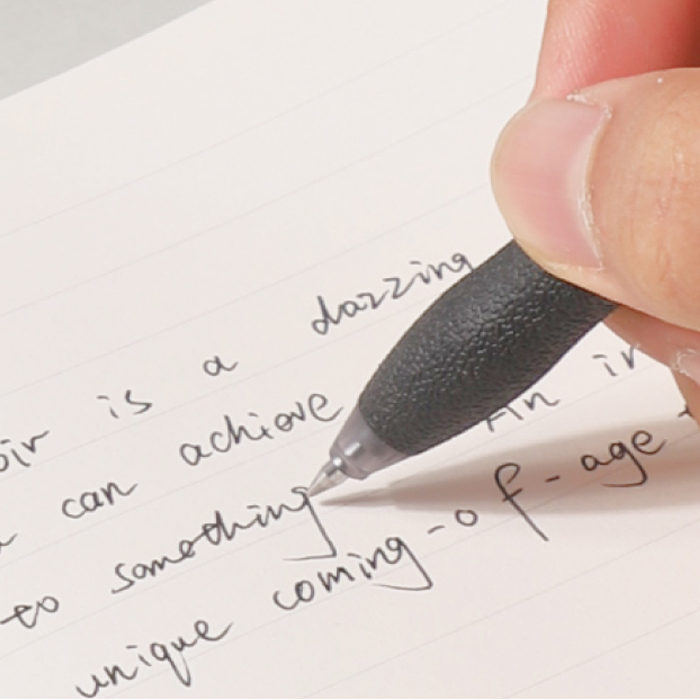 is a dazzing
can achieve An
to something
unique coming-of-age